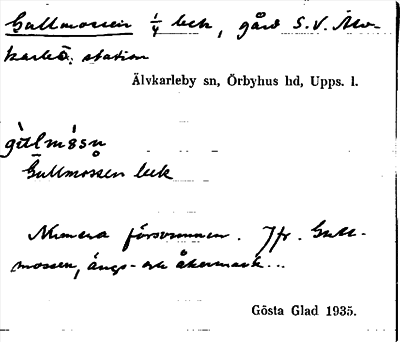 Gullmossen 1/4 bek, gård S.V. Älv-
karleö station
Älvkarleby sn, Örbyhus hd, Upps. l.
gùlmósn
Gullmossen bek
Numera försvunnen. Jfr. Gull-
mossen, ängs- och åkermark...
Gösta Glad 1935.